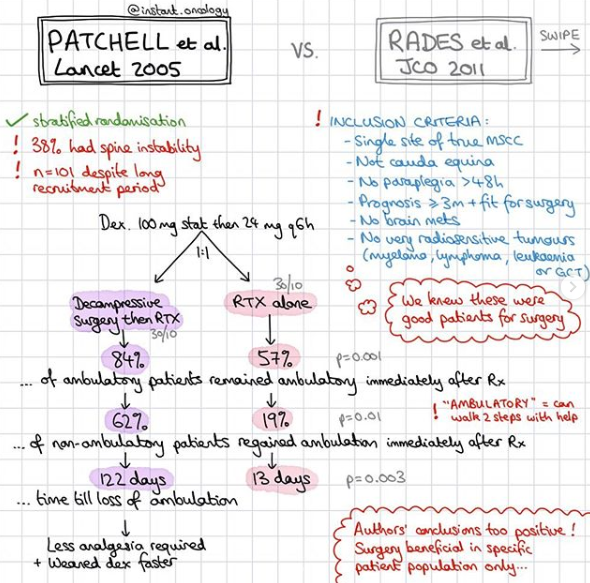 @instant.oncology
PATCHELL et al.
Lancet 2005
VS.
RADES et al.
JCO 2011
SWIPE
✓ stratified randomisation
! 38% had spine instability
! n=101 despite long
recruitment period
! INCLUSION CRITERIA:
- Single site of true MSCC
- Not cauda equina
- No paraplegia >48h
- Prognosis ≥3m + fit for surgery
- No brain mets
- No very radiosensitive tumours
(myeloma, lymphoma, leukaemia
or GCT)
We knew these were
good patients for surgery
Dex. 100mg stat then 24 mg q6h
1:1
Decompressive
surgery then RTX
30/10
30/10
RTX alone
84% 57% p=0.001
... of ambulatory patients remained ambulatory immediately after Rx
! "AMBULATORY" = can
walk 2 steps with help
62% 19% p=0.01
... of non-ambulatory patients regained ambulation immediately after Rx
122 days 13 days p=0.003
... time till loss of ambulation
Less analgesia required
+ Weaned dex faster
Authors' conclusions too positive!
Surgery beneficial in specific
patient population only...